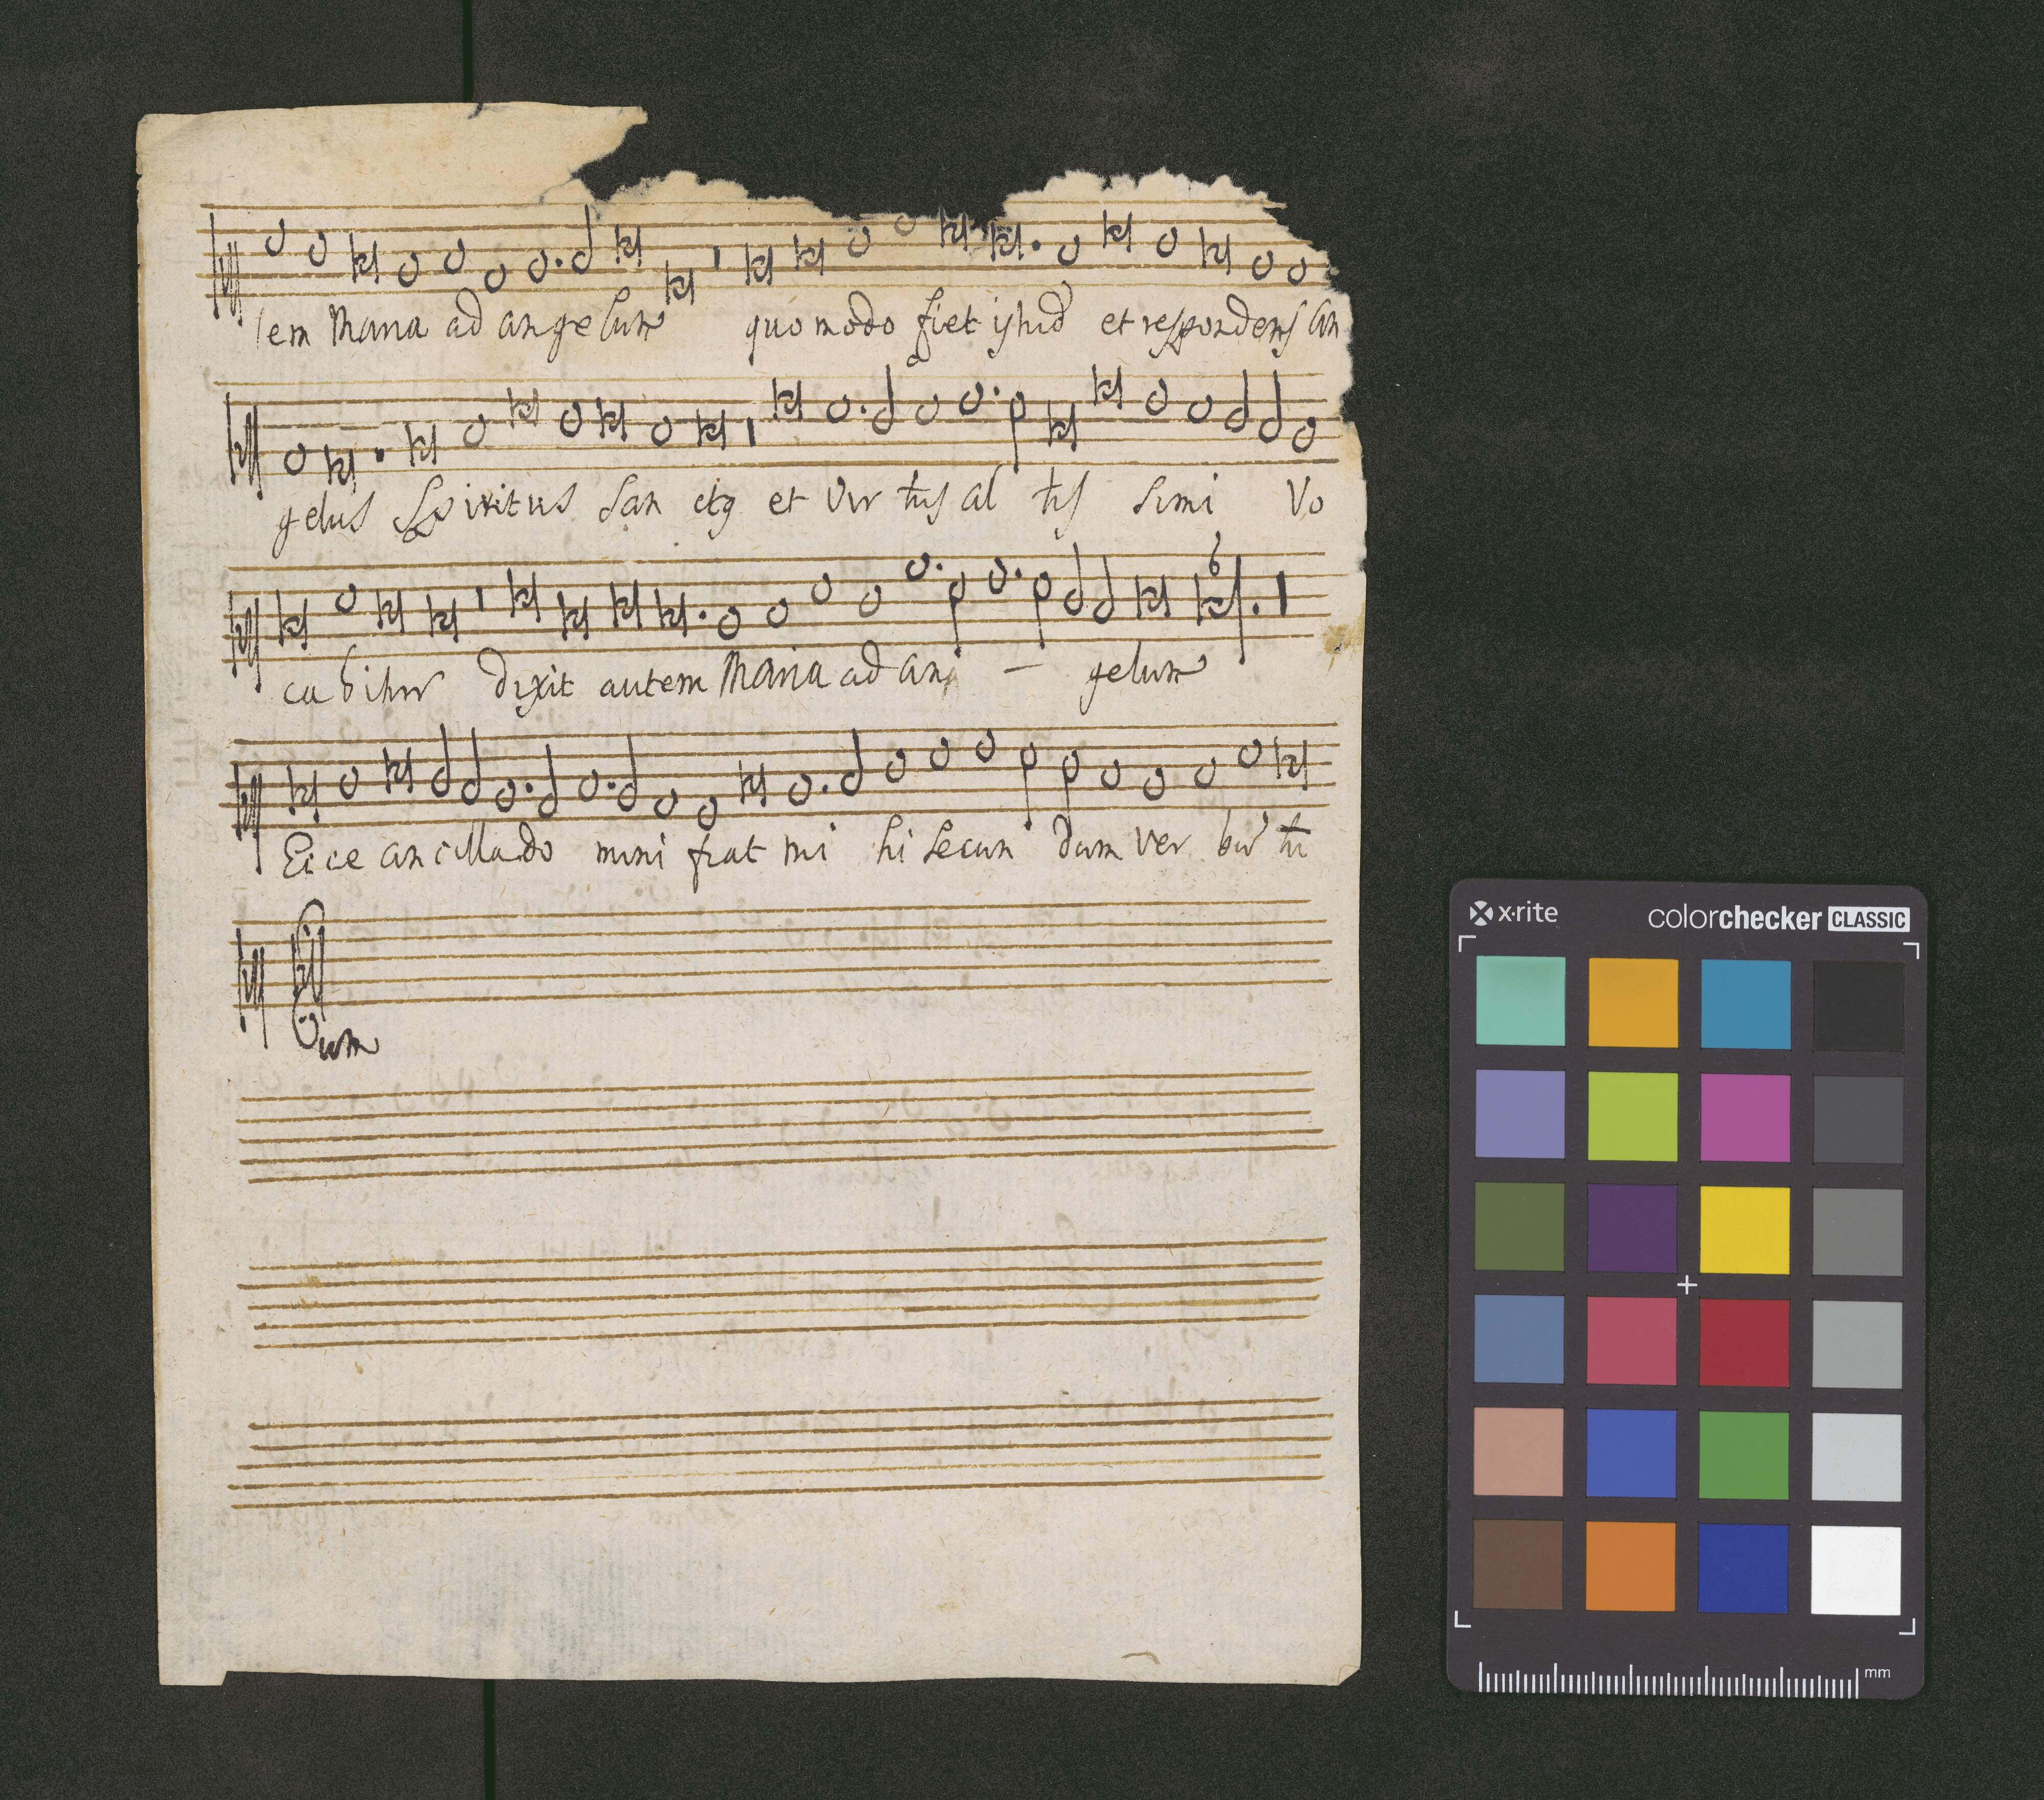 tem Maria ad angelum quomodo fiet istud et respondens an
gelus Spiritus San ctq et vir tus al tis simi Vo
cabitur dixit autem Maria ad an — gelum
6
Ecce ancilla do mini fiat mi hi secun dum ver bū tu
um
x·rite
colorchecker CLASSIC
mm